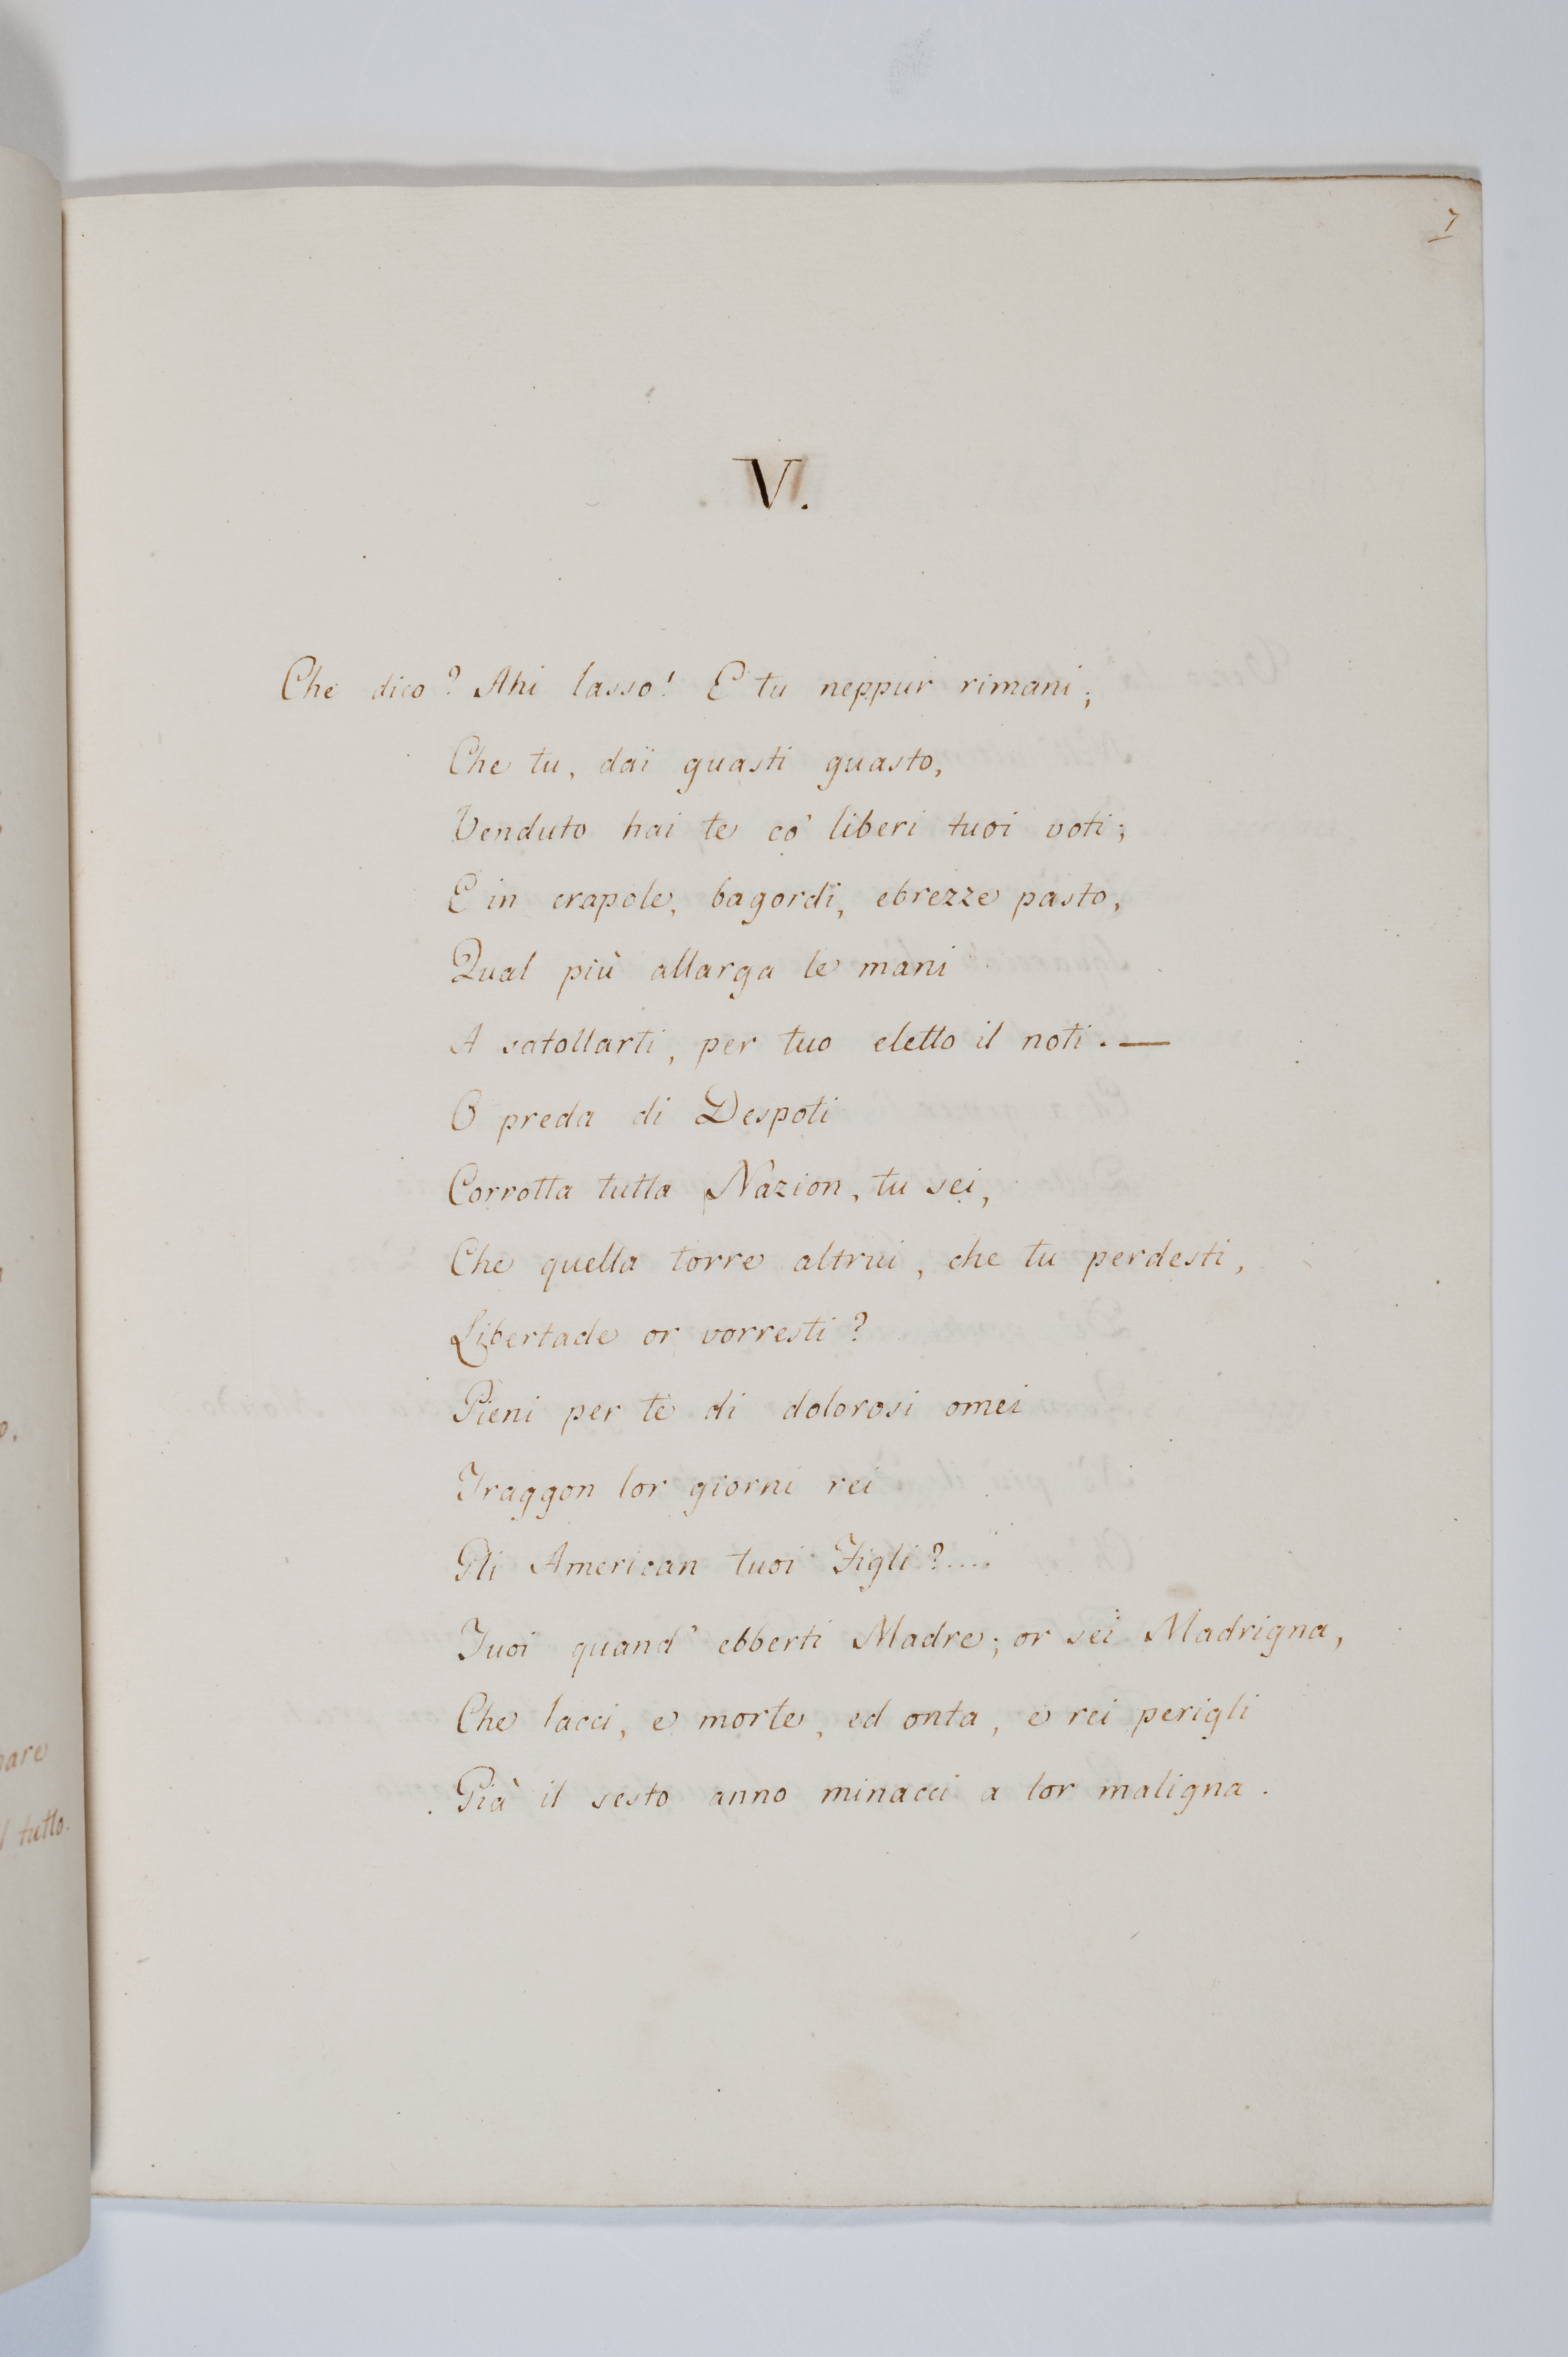 7
V.
Che dico? Ahi lasso! E tu neppur rimani;
Che tu, dai guasti guasto,
Venduto hai te co' liberi tuoi voti;
E in crapole, bagordi, ebrezze pasto,
Qual più allarga le mani
A satollarti, per tuo eletto il noti. —
O preda di Despoti
Corrotta tutta Nazion, tu sei,
Che quella torre altrui, che tu perdesti,
Libertade or vorresti?
Pieni per te di dolorosi omei
Traggon lor giorni rei
Gli American tuoi Figli?....
Tuoi quand' ebberti Madre; or sei Madrigna,
Che lacci, e morte, ed onta, e rei perigli
Già il sesto anno minacci a lor maligna.
tutto.